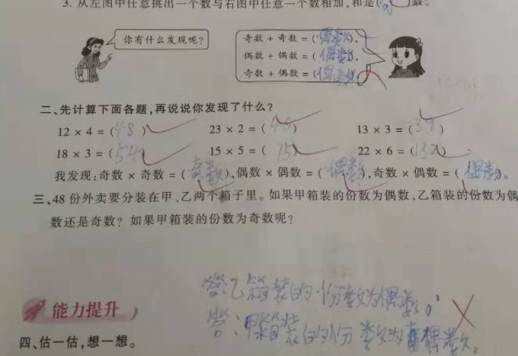 3. 从左图中任意挑出一个数与右图中任意一个数相加,和是( )数。
你有什么发现呢?
奇数 + 奇数 = (偶数),
偶数 + 偶数 = (偶数),
奇数 + 偶数 = ( )
二、先计算下面各题,再说说你发现了什么?
12 × 4 = (48) 23 × 2 = (46) 13 × 3 = (39)
18 × 3 = (54) 15 × 5 = (75) 22 × 6 = (132)
我发现:奇数 × 奇数 = (奇数),偶数 × 偶数 = (偶数),奇数 × 偶数 = (偶数)。
三、48 份外卖要分装在甲、乙两个箱子里。如果甲箱装的份数为偶数,乙箱装的份数为偶
数还是奇数? 如果甲箱装的份数为奇数呢?
答:乙箱装的份数为偶数。
答:甲箱装的份数为 偶数。
能力提升
四、估一估,想一想。